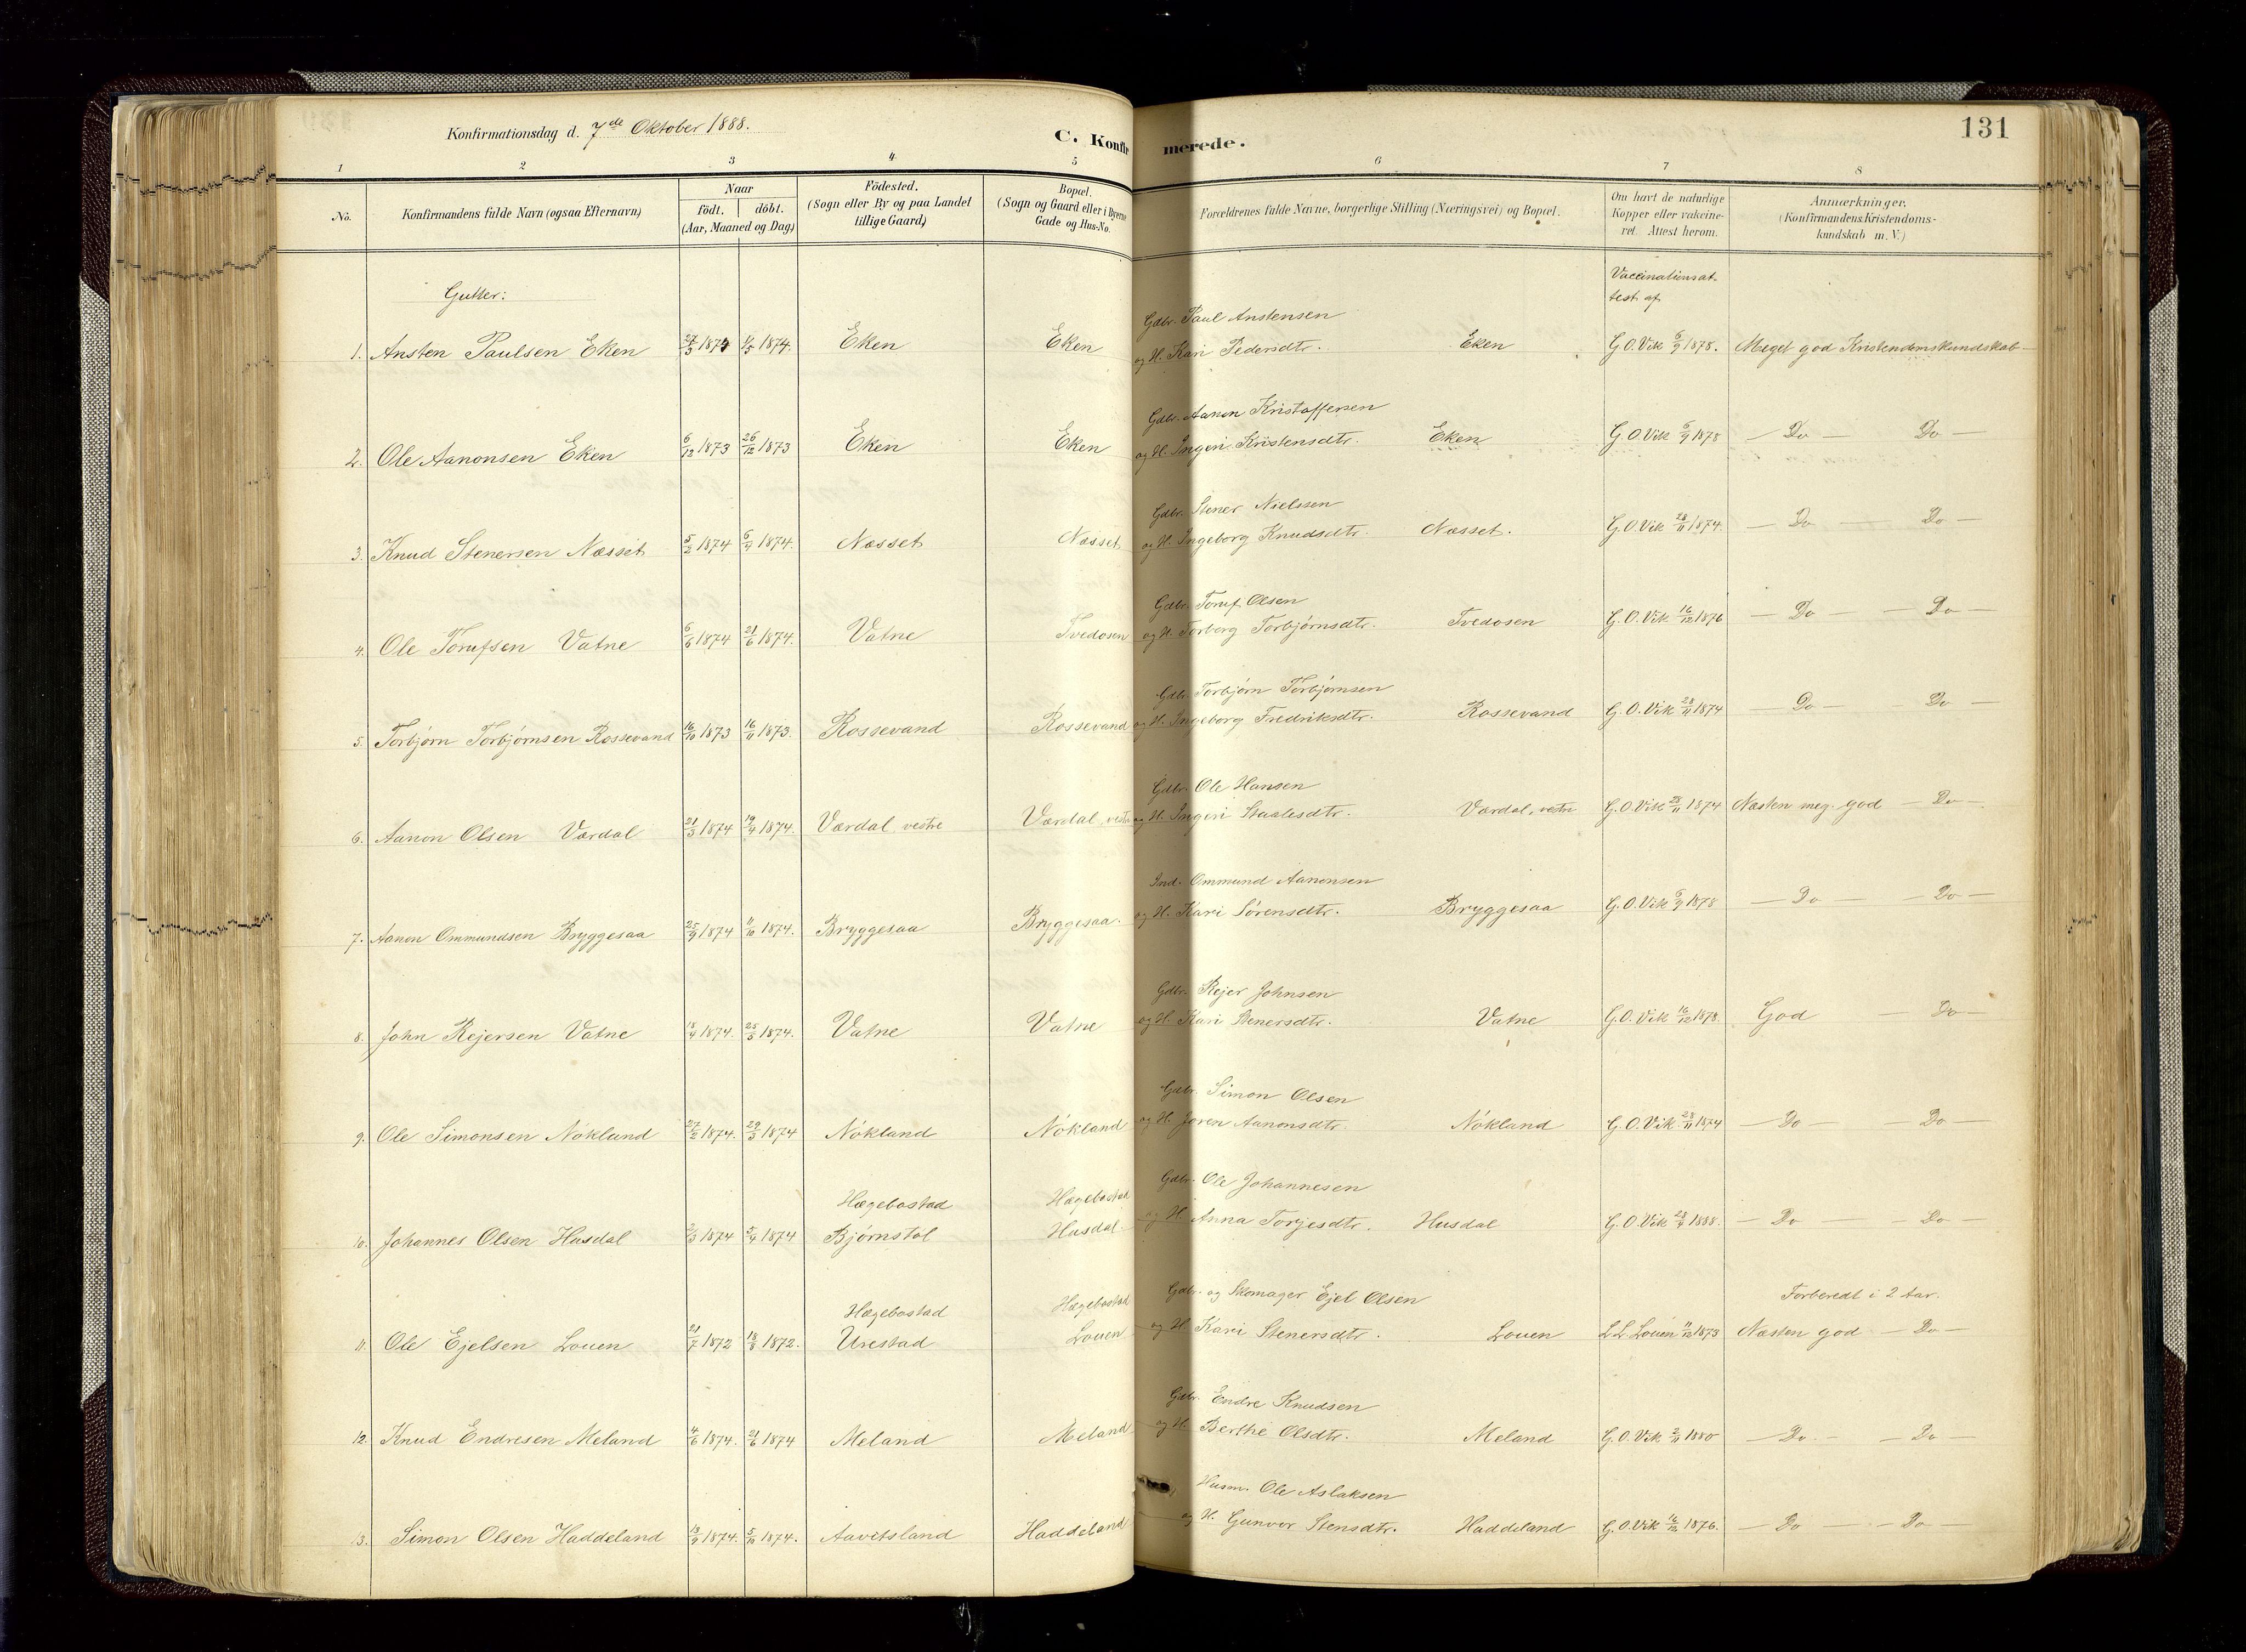 Konfirmationsdag d. 7de Oktober 1888.
C. Konfirmerede.
131
1 2 3 4 5 6 7 8
No.
Konfirmandens fulde Navn (ogsaa Efternavn)
Naar
födt. döbt.
(Aar, Maaned og Dag)
Födested.
(Sogn eller By og paa Landet
tillige Gaard)
Bopæl.
(Sogn og Gaard eller i Byerne
Gade og Hus-No.
Forældrenes fulde Navne, borgerlige Stilling (Næringsvei) og Bopæl.
Om havt de naturlige
Kopper eller vakcine-
ret. Attest herom.
Anmærkninger.
(Konfirmandens Kristendoms-
kundskab m. V.)
Gutter:
Vaccinationsat-
test af
Gdbr. Paul Anstensen
1. Ansten Paulsen Eken 27/3 1874 4/5 1874. Eken Eken og H. Kari Pedersdtr. Eken G. O. Vik 6/9 1878. Meget god Kristendomskundskab
Gdbr. Aanon Kristoffersen
2. Ole Aanonsen Eken 6/12 1873 26/12 1873 Eken Eken og H. Ingeri Kristensdtr. Eken G. O. Vik 6/9 1878 — Do — Do —
Gdbr. Stener Nielssen
3. Knud Stenersen Næsset 5/2 1874 6/4 1874. Næsset Næsset og H. Ingeborg Knudsdtr. Næsset. G. O. Vik 28/11 1874. — Do — Do —
Gdbr. Toruf Olsen
4. Ole Torufsen Vatne 6/6 1874 21/6 1874. Vatne Tvedosen og H. Torborg Torbjørnsdtr. Tvedosen G. O. Vik 16/12 1876 — Do — — Do —
Gdbr. Torbjørn Torbjørnsen
5. Torbjørn Torbjørnsen Rossevand 16/10 1873 16/11 1873. Rossevand Rossevand og H. Ingeborg Fredriksdtr. Rossevand G. O. Vik 28/11 1874 — Do — — Do —
Gdbr. Ole Hansen
6. Aanon Olsen Værdal 21/3 1874 19/4 1874. Værdal vestre Værdal vestre og H. Ingeri Staalesdtr. Værdal, vestre G. O. Vik 28/11 1874 Næsten meg. god — Do —
Ind. Ommund Aanonsen
7. Aanon Ommundsen Bryggesaa 25/9 1874 11/10 1874. Bryggesaa Bryggesaa. og H. Kari Sørensdtr. Bryggesaa G. O. Vik 6/9 1878 — Do — — Do —
Gdbr. Rejer Johnsen
8. John Rejersen Vatne 18/4 1874. 25/5 1874. Vatne Vatne og H. Kari Stenersdtr. Vatne G. O. Vik 16/12 1878. God — Do —
Gdbr. Simon Olsen
9. Ole Simonsen Nökland 27/2 1874. 29/3 1874 Nökland Nökland og H. Joren Aanonsdtr. Nökland G. O. Vik 28/11 1874 — Do — — Do —
Hægebostad Hægebostad Gdbr. Ole Johannesen
10. Johannes Olsen Husdal 2/3 1874 5/4 1874 Bjørnstøl Husdal og H. Anna Torjesdtr. Husdal G. O. Vik 28/9 1888. — Do — — Do —
Hægebostad Hægebostad Gdbr. og Skomager Ejel Olsen Forberedt i 2 Aar.
11. Ole Ejelsen Louen 21/7 1872 18/8 1872. Urestad Louen og H. Kari Stenersdtr. Louen L. L. Louen 11/12 1873 Næsten god — Do —
Gdbr. Endre Knudsen
12. Knud Endresen Meland 4/6 1874. 21/6 1874 Meland Meland og H. Berthe Olsdtr. Meland G. O. Vik 2/11 1880 — Do. — — Do —
Husm. Ole Aslaksen
13. Simon Olsen Haddeland 13/9 1874. 5/10 1874. Aavitsland Haddeland og H. Gunvor Stensdtr. Haddeland G. O. Vik 16/12 1876. — Do — — Do —